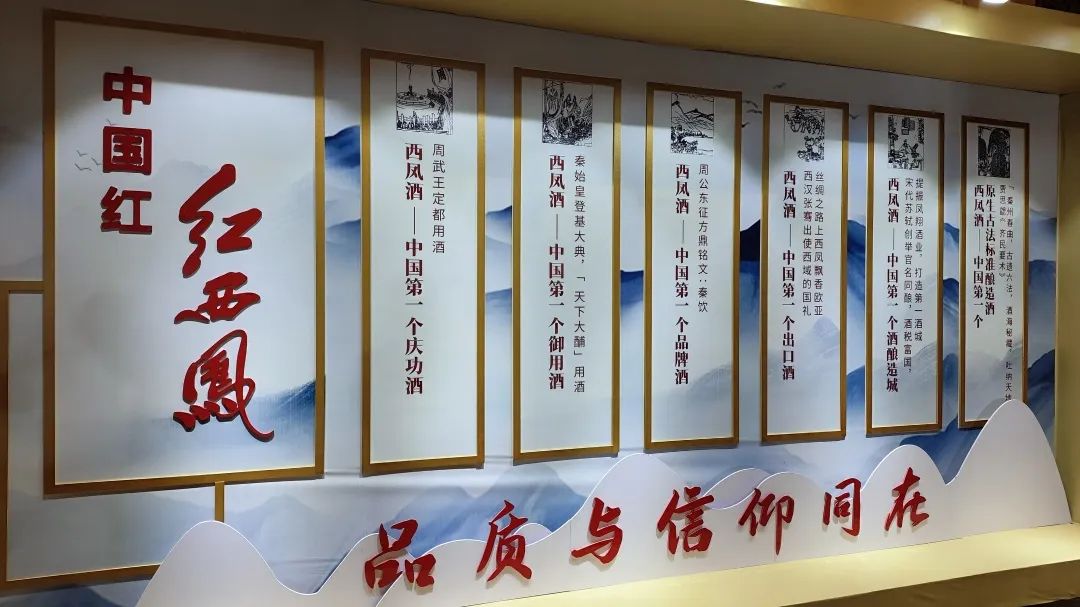 中国红
红西鳳
周武王定都用酒
西凤酒——中国第一个庆功酒
秦始皇登基大典，「天下大酺」用酒
西凤酒——中国第一个御用酒
周公东征方鼎铭文：秦饮
西凤酒——中国第一个品牌酒
丝绸之路上西凤飘香欧亚
西汉张骞出使西域的国礼
西凤酒——中国第一个出口酒
提振凤翔酒业，打造第一酒城
宋代苏轼创举官名同酿，酒税富国，
西凤酒——中国第一个酒酿造城
「秦州春曲，古遗六法，酒海秘藏，吐纳天地
贾思勰《齐民要术》
原生古法标准酿造酒
西凤酒——中国第一个
品质与信仰同在